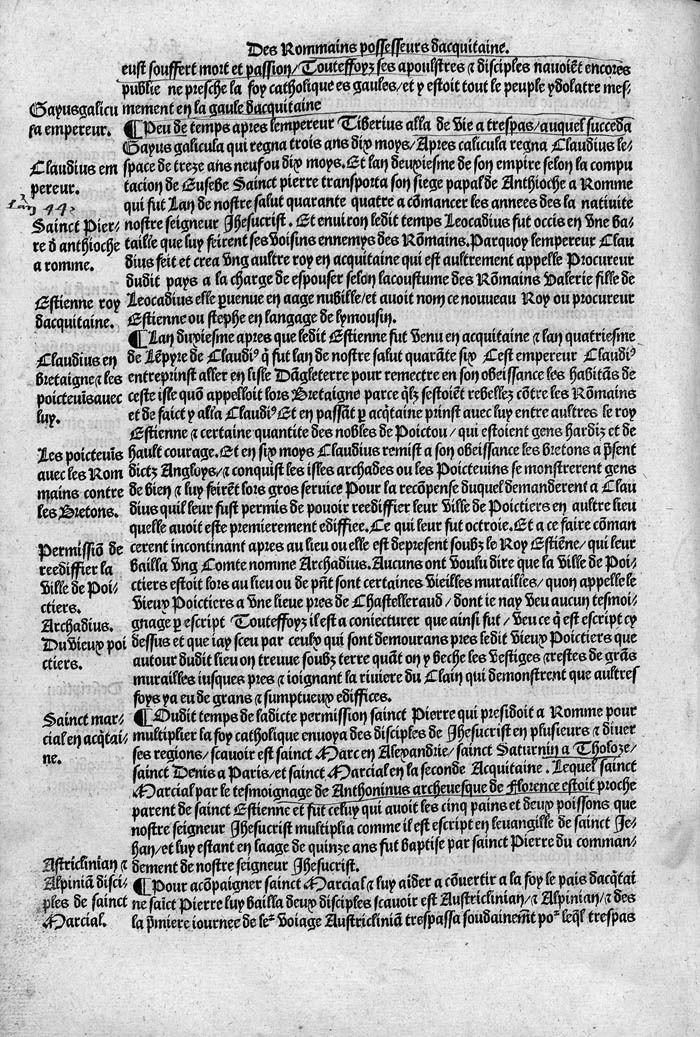 Des Rommains possesseurs dacquitaine.
eust souffert mort et passion/ Touteffoyz ses apoulstres ⁊ disciples nauoiẽt encores
publie ne presche la foy catholique es gaules/et y estoit tout le peuple ydolatre mes-
mement en la gaule dacquitaine
Gayus galicu
la empereur.
¶ Peu de temps apres lempereur Tiberius alla de vie a trespas/auquel succeda
Gayus galicula qui regna trois ans dix moys/Apres calicula regna Claudius le-
Claudius em
pereur.
space de treze ans neuf ou dix moys. Et lan deuxiesme de son empire selon la compu
tacion de Eusebe Sainct pierre transporta son siege papal de Anthioche a Romme
Lan 44.
Sainct Pier-
re d anthioche
a romme.
qui fut Lan de nostre salut quarante quatre a cõmancer les annees des la natiuite
nostre seigneur Jhesucrist. Et enuiron ledit temps Leocadius fut occis en vne ba-
taille que luy feirent ses voisins ennemys des Rõmains. Parquoy lempereur Clau
dius feit et crea vng aultre roy en acquitaine qui est aultrement appelle Procureur
dudit pays a la charge de espouser selon lacoustume des Rõmains Valerie fille de
Estienne roy
dacquitaine.
Leocadius elle ꝑuenue en aage nubille/et auoit nom ce nouueau Roy ou procureur
Estienne ou stephe en langage de lymousin.
¶ Lan duxiesme apres que ledit Estienne fut venu en acquitaine ⁊ lan quatriesme
Claudius en
bretaigne ⁊ les
poicteuis auec
luy.
de lẽpyre de Claudiꝰ q̃ fut lan de nostre salut quarãte six Cest empereur Claudiꝰ
entreprinst aller en lisle Dãgleterre pour remectre en son obeissance les habitãs de
ceste isle quõ appelloit lors Bretaigne parce qlz sestoiẽt rebellez cõtre les Rõmains
et de faict y alla Claudiꝰ Et en passãt p acq̃taine prinst auec luy entre aultres le roy
Estienne ⁊ certaine quantite des nobles de Poictou/qui estoient gens hardiz et de
Les poicteuĩs
auec les Rom
mains contre
les Bretons.
hault courage. Et en six moys Claudius remist a son obeissance les bretons a p̃sent
dictz Angloys/⁊ conquist les isles archades ou les Poicteuins se monstrerent gens
de bien ⁊ luy feirẽt lors gros seruice Pour la recõpense duquel demanderent a Clau
dius quil leur fust permis de pouoir reediffier leur ville de Poictiers en aultre lieu
quelle auoit este premierement ediffier. Ce qui leur fut octroie. Et a ce faire cõman
Permissiõ de
reediffier la
ville de Poi-
ctiers.
cerent incontinant apres au lieu ou elle est depresent soubz le Roy Estiẽne/qui leur
bailla vng Comte nomme Archadius. Aucuns ont voulu dire que la ville de Poi-
ctiers estoit lors au lieu ou de pñt sont certaines vieilles murailles/quon appelle le
vieux Poictiers a vne lieue pres de Chastelleraud/dont ie nay veu aucun tesmoi-
Archadius.
Du vieux poi
ctiers.
gnage p escript Touteffoyz il est a coniecturer que ainsi fut/veu ce q̃ est escript cy
dessus et que iay sceu par ceulx qui sont demourans pres ledit vieux Poictiers que
autour dudit lieu on treuue soubz terre quãt on y beche les vestiges ⁊restes de grãs
murailles iusques pres ⁊ ioignant la riuiere du Clain qui demonstrent que aultres
foys ya eu de grans ⁊ sumptueux ediffices.
Sainct mar-
cial en acq̃tai-
ne.
¶ Oudit temps de ladicte permission sainct Pierre qui presidoit a Romme pour
multiplier la foy catholique enuoya des disciples de Jhesucrist en plusieurs ⁊ diuer
ses regions/scauoir est sainct Marc en Alexandrie/sainct Saturnin a Tholoze/
sainct Denis a Paris/et sainct Marcial en la seconde Acquitaine. Lequel sainct
Marcial par le tesmoignage de Anthoninus archeuesque de Florence estoit proche
parent de sainct Estienne et fut celuy qui auoit les cinq pains et deux poissons que
nostre seigneur Jhesucrist multiplia comme il est escript en leuangille de sainct Je-
han/et luy estant en laage de quinze ans fut baptise par sainct Pierre du comman-
dement de nostre seigneur Jhesucrist.
Astriclinian ⁊
Alpiniã disci-
ples de sainct
Marcial.
¶ Pour acõpaigner sainct Marcial ⁊ luy aider a cõuertir a la foy le pais dacq̃tai
ne saict Pierre luy bailla deux disciples scauoir est Austriclinian/⁊ Alpinian/⁊ des
la p̃miere iournee de leʳ voiage Austricliniã trespassa soudainemẽt poʳ leq̃l trespas